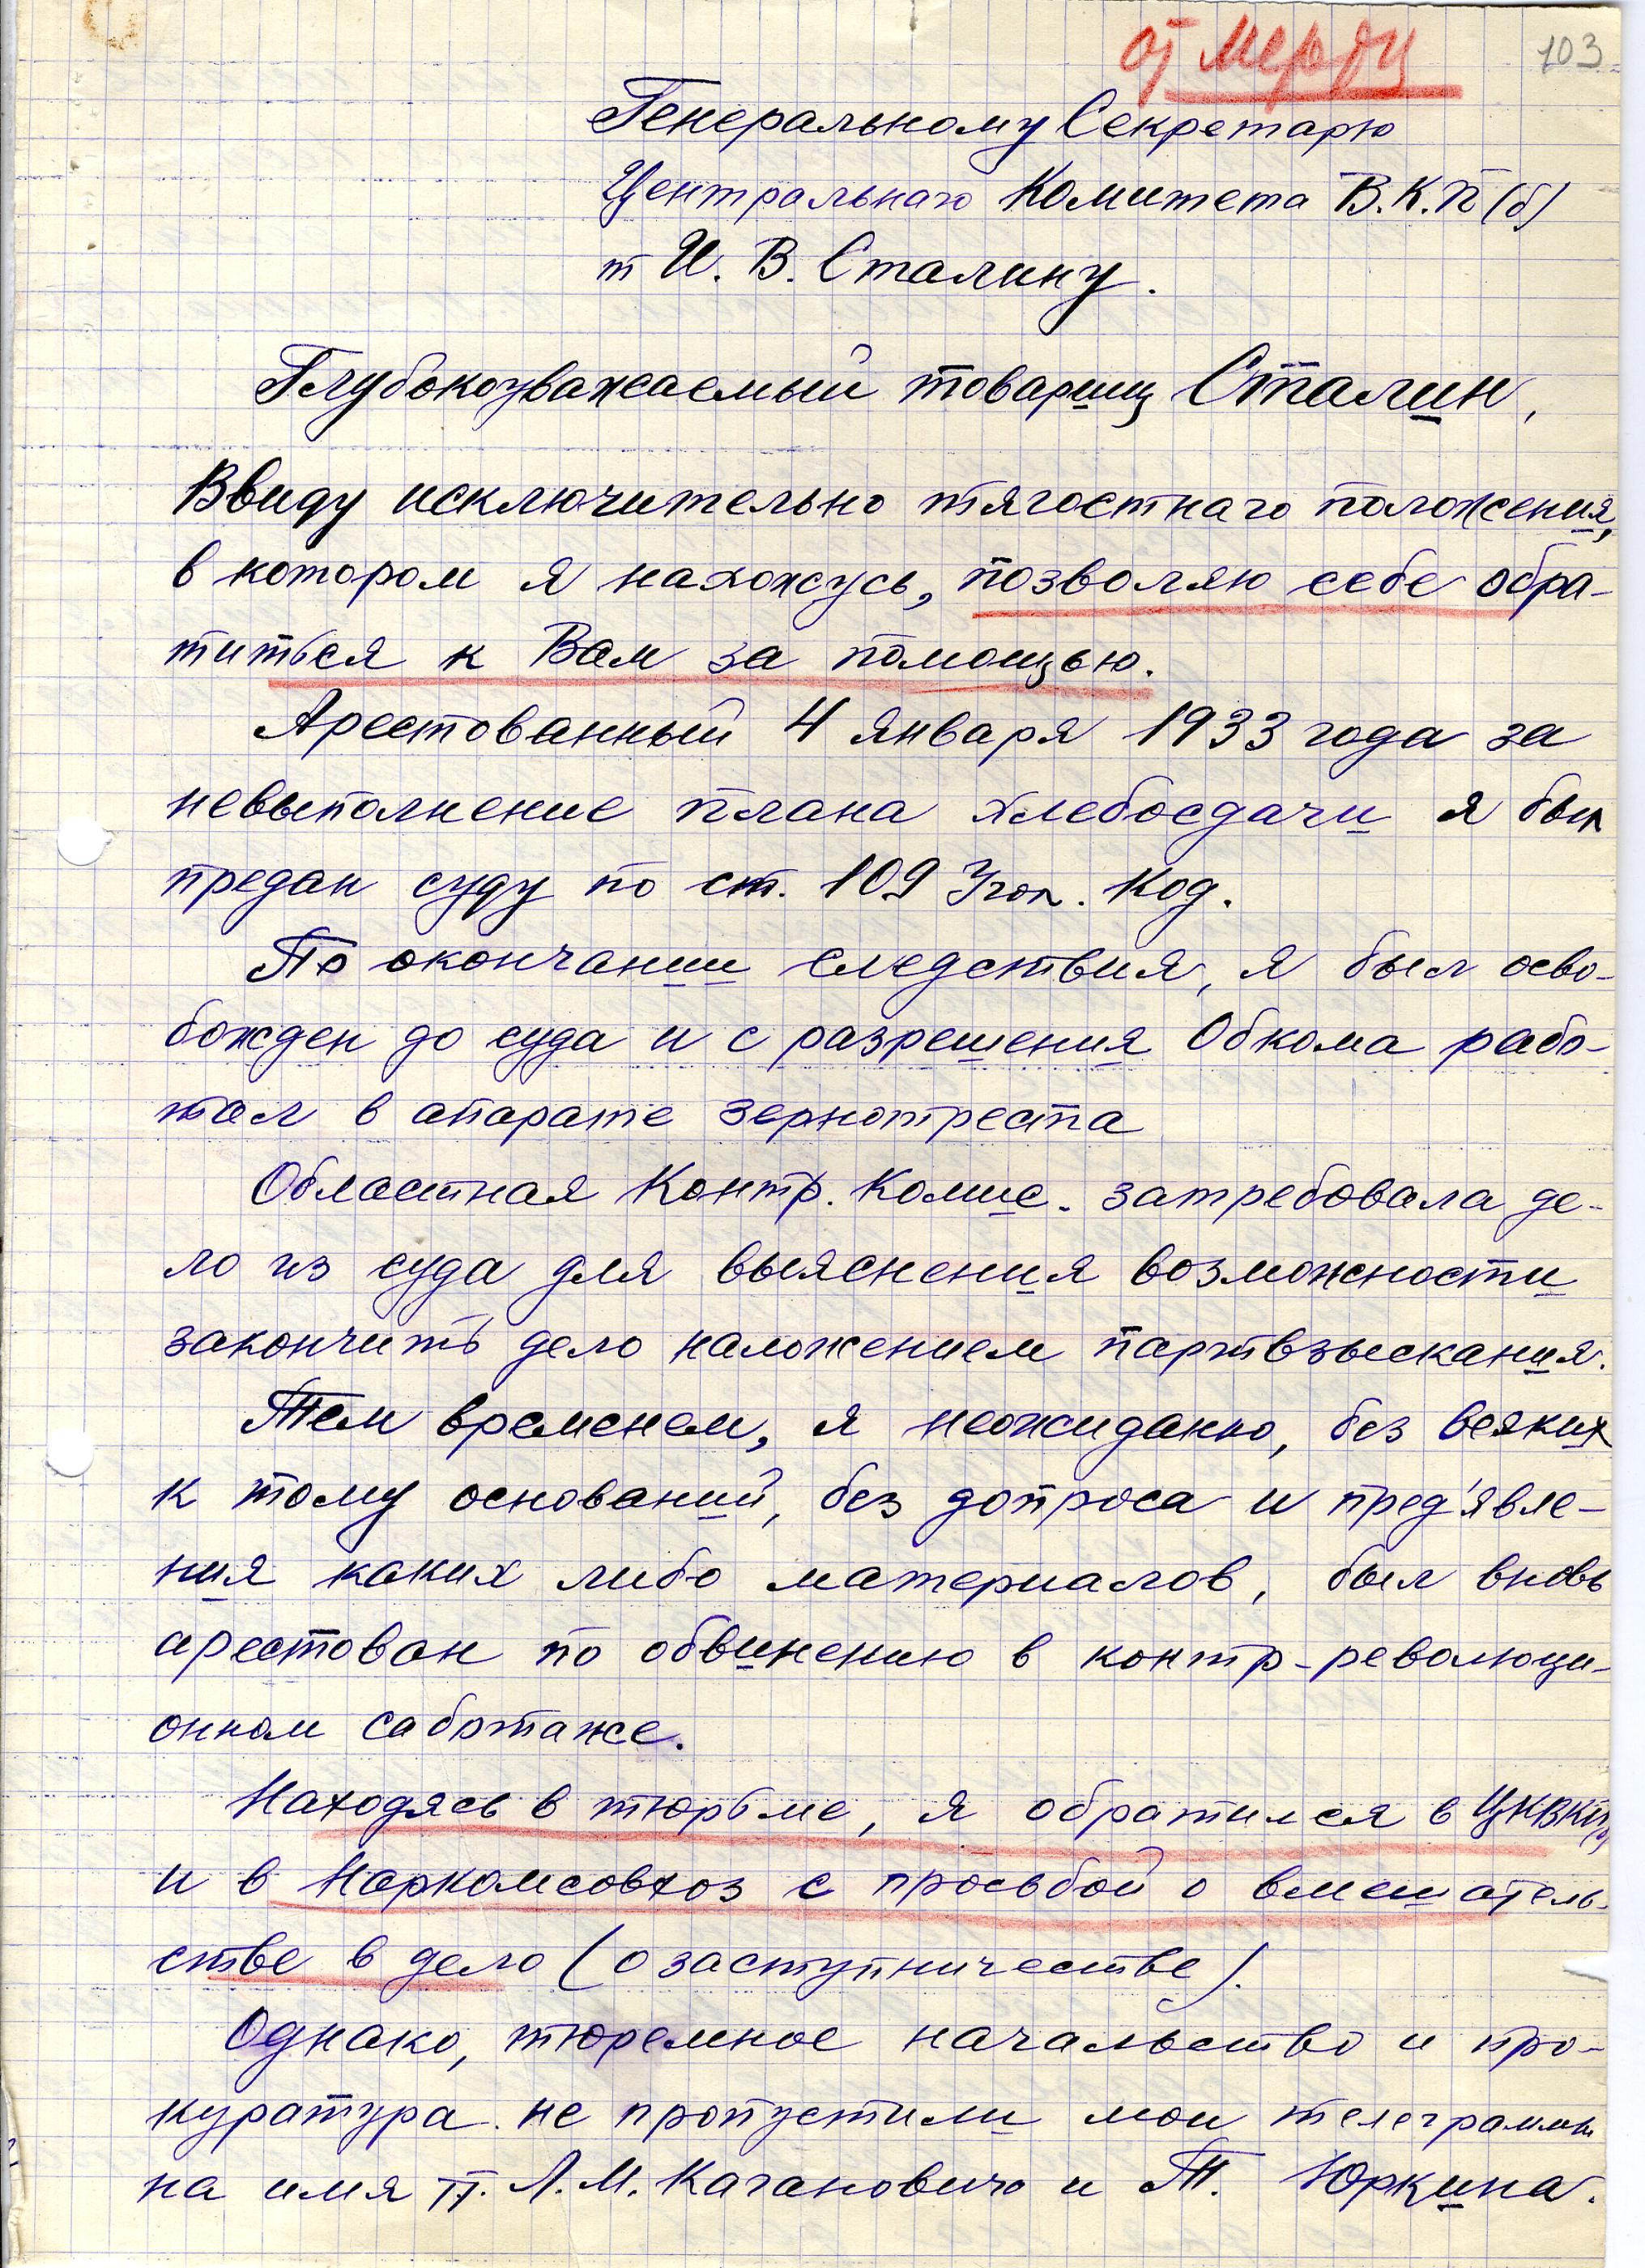 от Мерфи
103
Генеральному Секретарю
Центральнаго Комитета В.К.П(б)
т И. В. Сталину.
Глубокоуважаемый товарищ Сталин,
Ввиду исключительно тягостнаго положения,
в котором я нахожусь, позволяю себе обра-
титься к Вам за помощью.
Арестованный 4 января 1933 года за
невыполнение плана хлебосдачи я был
предан суду по ст. 109 Угол. Код.
По окончании следствия, я был осво-
божден до суда и с разрешения Обкома рабо-
тал в апарате зернотреста
Областная Контр. Комис. затребовала де-
ло из суда для выяснения возможности
закончить дело наложением партвзыскания.
Тем временем, я неожиданно, без всяких
к тому оснований, без допроса и пред'явле-
ния каких либо материалов, был вновь
арестован по обвинению в контр-революци-
онном саботаже.
Находясь в тюрьме, я обратился в ЦКВКП(б)
и в Наркомсовхоз с просьбой о вмешатель-
стве в дело (о заступничестве).
Однако, тюремное начальство и про-
куратура не пропустили мои телеграммы
на имя т. Л. М. Кагановича и Т. Юркина.